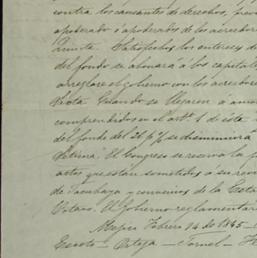 contra los causantes de derechos, prev
apoderado ó apoderados de los acreedores
Satisfechos los intereses de
del fondo se abonará á los capitales
arreglare el gobierno con los acreedores
Nota Cuando se llegaren á amor
comprendidos en el artº 1 de este
del fondo del 26 p% se disminuirá
El Congreso se reserva la
actos que estan sometidos a su
de Tacubaya y convenios de la Esta
El Gobierno reglamentará
Mejico Febrero 14 de 1845
Escoto - Ortega - Tornel - H